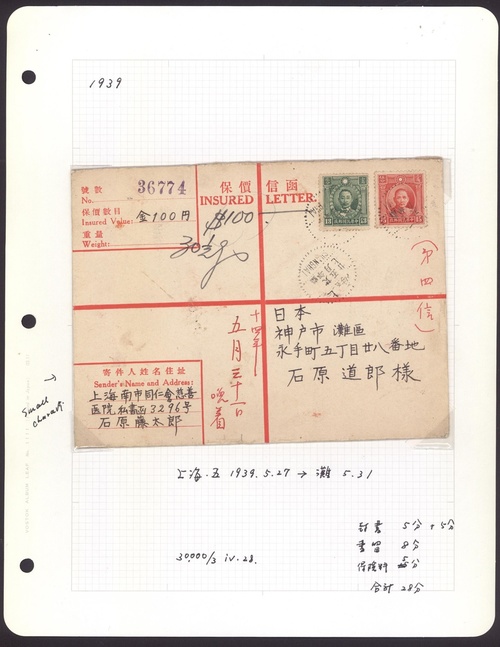 1939
號數
No.
36774
保價數目
Insured Value:
金100円
重量
Weight:
30½g
保價信函
INSURED LETTER.
$100
(第四信)
日本
神戶市 灘區
永手町五丁目廿八番地
石原道郎様
十四年
五月三十一日
晩着
寄件人姓名住址
Sender's Name and Address:
上海南市同仁會慈善
医院私書函3296号
石原藤太郎
small
上海.五 1939.5.27 → 灘 5.31
封書 5分+5分
書留 8分
保険料
合計 28分
30.000/3 iv.28.